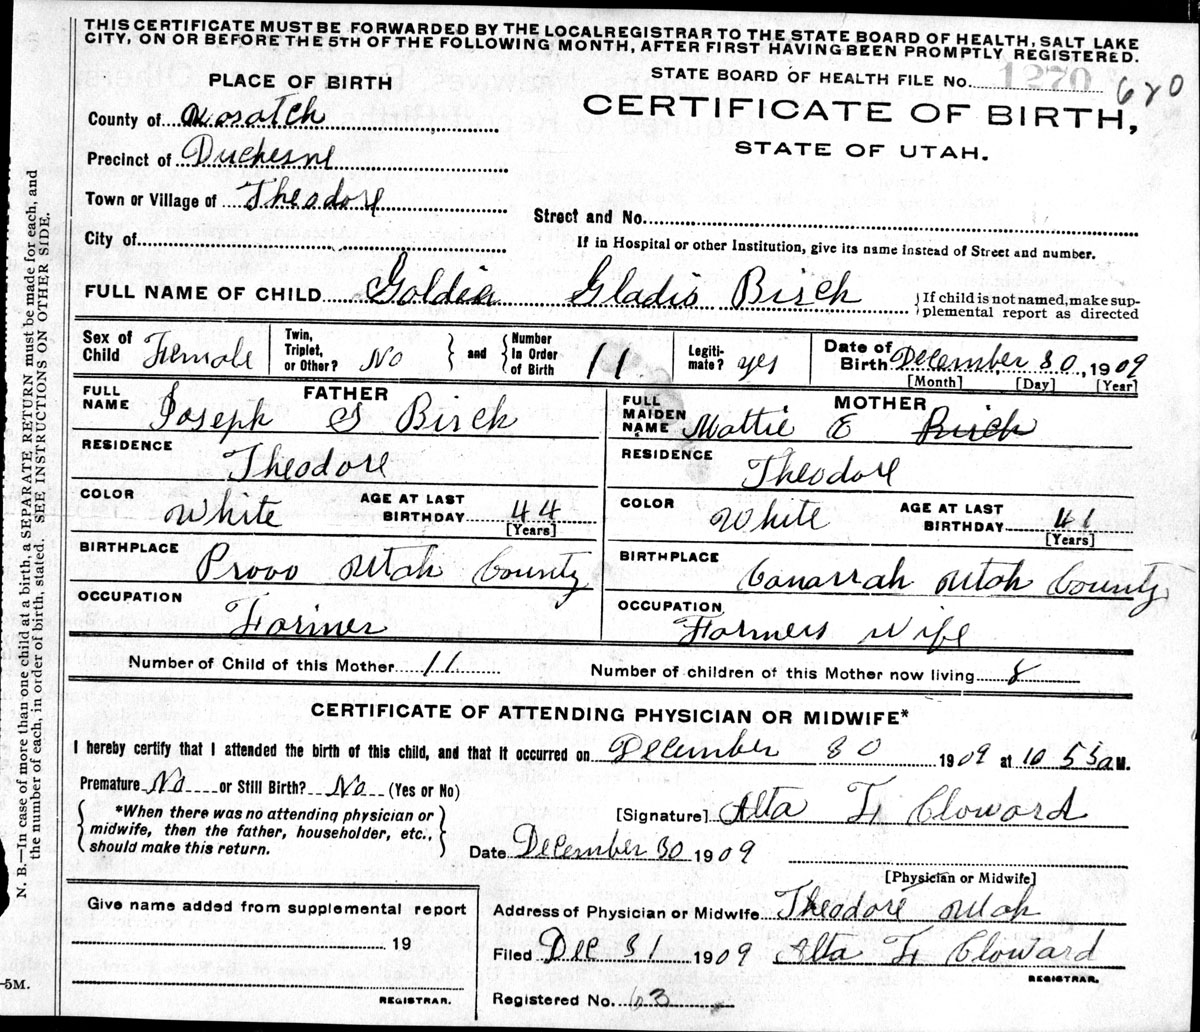 THIS CERTIFICATE MUST BE FORWARDED BY THE LOCAL REGISTRAR TO THE STATE BOARD OF HEALTH, SALT LAKE
CITY, ON OR BEFORE THE 5TH OF THE FOLLOWING MONTH, AFTER FIRST HAVING BEEN PROMPTLY REGISTERED.
PLACE OF BIRTH
STATE BOARD OF HEALTH FILE No. 1270 620
CERTIFICATE OF BIRTH,
STATE OF UTAH.
County of Wasatch
Precinct of Duchesne
Town or Village of Theodore
Street and No.
City of
If in Hospital or other Institution, give its name instead of Street and number.
FULL NAME OF CHILD Goldia Gladis Birch
If child is not named, make sup-
plemental report as directed
Sex of Child Female
Twin, Triplet, or Other? No
and Number In Order of Birth 11
Legiti-mate? yes
Date of Birth December 30, 1909
[Month] [Day] [Year]
FATHER
FULL NAME Joseph S Birch
RESIDENCE Theodore
COLOR White AGE AT LAST BIRTHDAY 44
[Years]
BIRTHPLACE Provo Utah County
OCCUPATION Farmer
MOTHER
FULL MAIDEN NAME Mattie E Birch
RESIDENCE Theodore
COLOR White AGE AT LAST BIRTHDAY 41
[Years]
BIRTHPLACE Canarrah Utah County
OCCUPATION Farmers Wife
Number of Child of this Mother 11
Number of children of this Mother now living 8
CERTIFICATE OF ATTENDING PHYSICIAN OR MIDWIFE*
I hereby certify that I attended the birth of this child, and that it occurred on December 30 1909 at 10 55 a M.
Premature No or Still Birth? No (Yes or No)
*When there was no attending physician or
midwife, then the father, householder, etc.,
should make this return.
[Signature] Alta F. Cloward
Date December 30 1909
[Physician or Midwife]
Give name added from supplemental report
19
REGISTRAR.
Address of Physician or Midwife Theodore Utah
Filed Dec 31 1909 Alta F. Cloward
REGISTRAR.
Registered No. 63
–5M.
N. B.—In case of more than one child at a birth, a SEPARATE RETURN must be made for each, and
the number of each, in order of birth, stated. SEE INSTRUCTIONS ON OTHER SIDE.